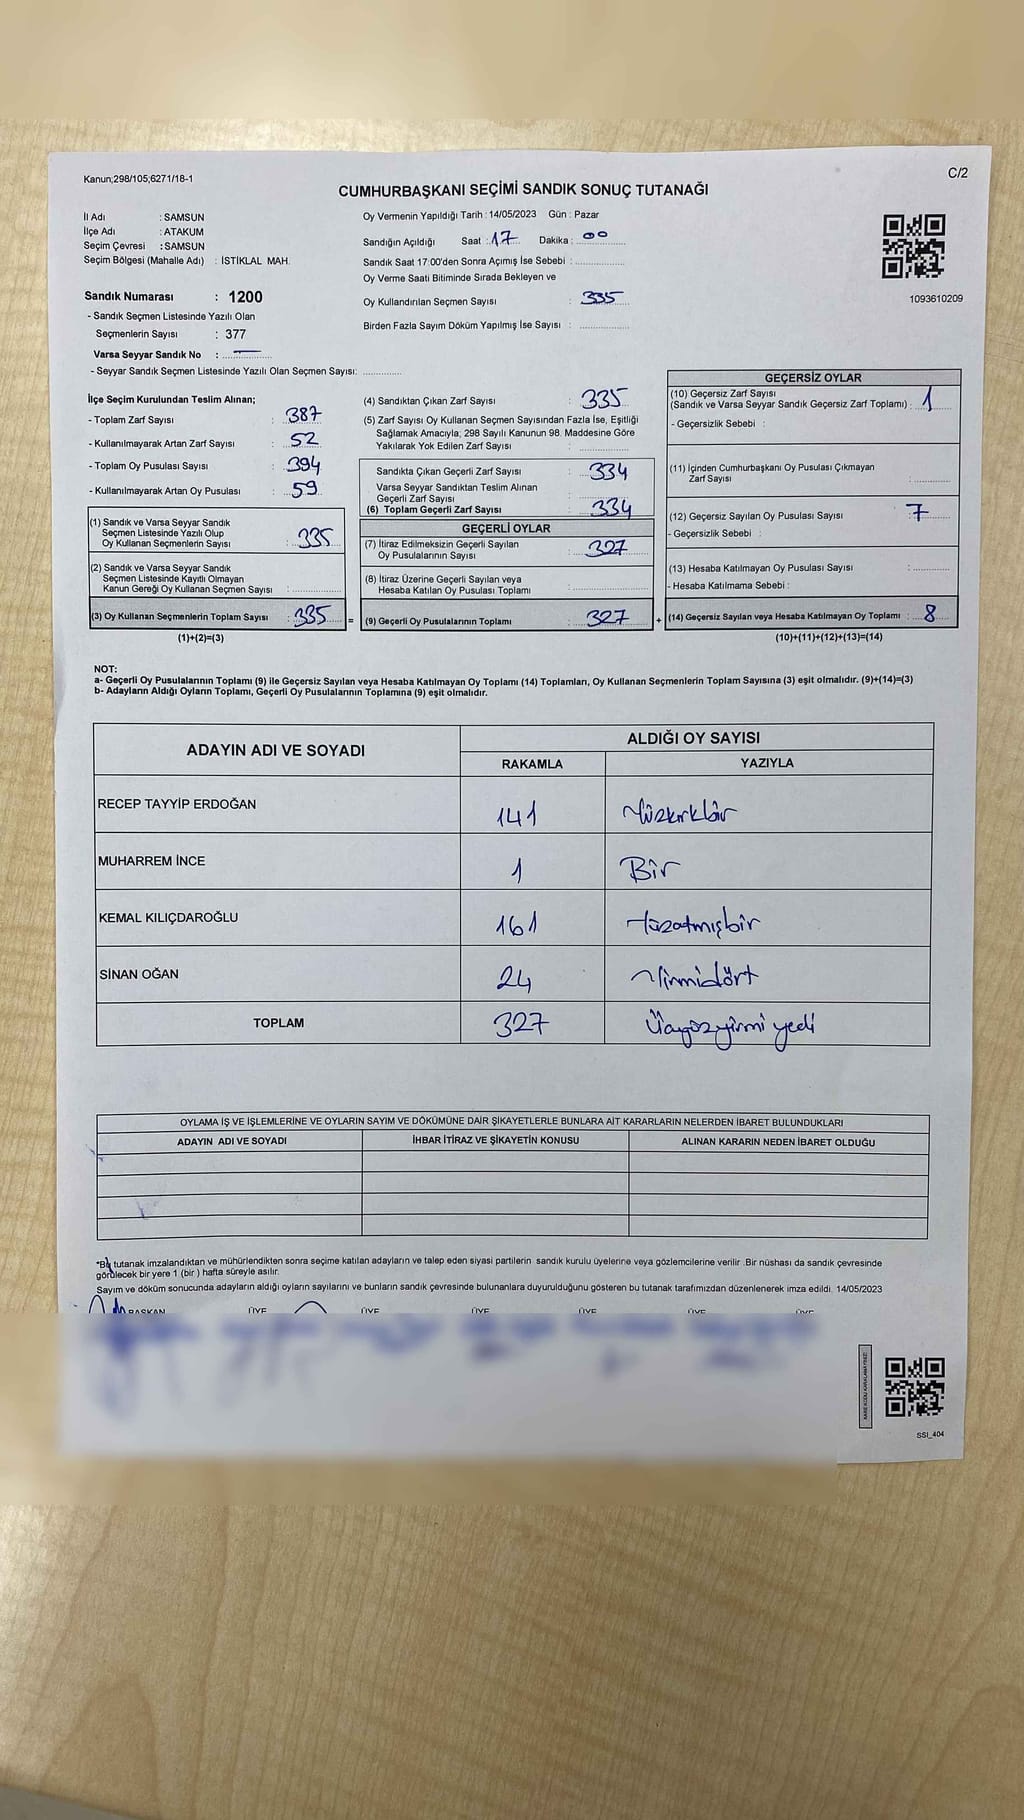 Kanun;298/105;6271/18-1
C/2
CUMHURBAŞKANI SEÇİMİ SANDIK SONUÇ TUTANAĞI
İl Adı : SAMSUN
İlçe Adı : ATAKUM
Seçim Çevresi : SAMSUN
Seçim Bölgesi (Mahalle Adı) : İSTİKLAL MAH.
Sandık Numarası : 1200
- Sandık Seçmen Listesinde Yazılı Olan
Seçmenlerin Sayısı : 377
Varsa Seyyar Sandık No : —
- Seyyar Sandık Seçmen Listesinde Yazılı Olan Seçmen Sayısı:
Oy Vermenin Yapıldığı Tarih : 14/05/2023 Gün : Pazar
Sandığın Açıldığı Saat : 17 Dakika : 00
Sandık Saat 17:00'den Sonra Açımış İse Sebebi :
Oy Verme Saati Bitiminde Sırada Bekleyen ve
Oy Kullandırılan Seçmen Sayısı : 335
Birden Fazla Sayım Döküm Yapılmış İse Sayısı :
1093610209
İlçe Seçim Kurulundan Teslim Alınan;
- Toplam Zarf Sayısı : 387
- Kullanılmayarak Artan Zarf Sayısı : 52
- Toplam Oy Pusulası Sayısı : 394
- Kullanılmayarak Artan Oy Pusulası : 59
(1) Sandık ve Varsa Seyyar Sandık
Seçmen Listesinde Yazılı Olup
Oy Kullanan Seçmenlerin Sayısı : 335
(2) Sandık ve Varsa Seyyar Sandık
Seçmen Listesinde Kayıtlı Olmayan
Kanun Gereği Oy Kullanan Seçmen Sayısı :
(3) Oy Kullanan Seçmenlerin Toplam Sayısı : 335
(1)+(2)=(3)
=
(4) Sandıktan Çıkan Zarf Sayısı : 335
(5) Zarf Sayısı Oy Kullanan Seçmen Sayısından Fazla İse, Eşitliği
Sağlamak Amacıyla; 298 Sayılı Kanunun 98. Maddesine Göre
Yakılarak Yok Edilen Zarf Sayısı :
Sandıkta Çıkan Geçerli Zarf Sayısı : 334
Varsa Seyyar Sandıktan Teslim Alınan
Geçerli Zarf Sayısı :
(6) Toplam Geçerli Zarf Sayısı : 334
GEÇERLİ OYLAR
(7) İtiraz Edilmeksizin Geçerli Sayılan
Oy Pusulalarının Sayısı : 327
(8) İtiraz Üzerine Geçerli Sayılan veya
Hesaba Katılan Oy Pusulası Toplamı :
(9) Geçerli Oy Pusulalarının Toplamı : 327
+
GEÇERSİZ OYLAR
(10) Geçersiz Zarf Sayısı
(Sandık ve Varsa Seyyar Sandık Geçersiz Zarf Toplamı) : 1
- Geçersizlik Sebebi :
(11) İçinden Cumhurbaşkanı Oy Pusulası Çıkmayan
Zarf Sayısı :
(12) Geçersiz Sayılan Oy Pusulası Sayısı : 7
- Geçersizlik Sebebi :
(13) Hesaba Katılmayan Oy Pusulası Sayısı :
- Hesaba Katılmama Sebebi :
(14) Geçersiz Sayılan veya Hesaba Katılmayan Oy Toplamı : 8
(10)+(11)+(12)+(13)=(14)
NOT:
a- Geçerli Oy Pusulalarının Toplamı (9) ile Geçersiz Sayılan veya Hesaba Katılmayan Oy Toplamı (14) Toplamları, Oy Kullanan Seçmenlerin Toplam Sayısına (3) eşit olmalıdır. (9)+(14)=(3)
b- Adayların Aldığı Oyların Toplamı, Geçerli Oy Pusulalarının Toplamına (9) eşit olmalıdır.
ADAYIN ADI VE SOYADI ALDIĞI OY SAYISI
RAKAMLA YAZIYLA
RECEP TAYYİP ERDOĞAN 141 Yüzkırkbir
MUHARREM İNCE 1 Bir
KEMAL KILIÇDAROĞLU 161 Yüzatmışbir
SİNAN OĞAN 24 Yirmidört
TOPLAM 327 Üçyüzyirmi yedi
OYLAMA İŞ VE İŞLEMLERİNE VE OYLARIN SAYIM VE DÖKÜMÜNE DAİR ŞİKAYETLERLE BUNLARA AİT KARARLARIN NELERDEN İBARET BULUNDUKLARI
ADAYIN ADI VE SOYADI İHBAR İTİRAZ VE ŞİKAYETİN KONUSU ALINAN KARARIN NEDEN İBARET OLDUĞU
*Bu tutanak imzalandıktan ve mühürlendikten sonra seçime katılan adayların ve talep eden siyasi partilerin sandık kurulu üyelerine veya gözlemcilerine verilir .Bir nüshası da sandık çevresinde
görülecek bir yere 1 (bir ) hafta süreyle asılır.
Sayım ve döküm sonucunda adayların aldığı oyların sayılarını ve bunların sandık çevresinde bulunanlara duyurulduğunu gösteren bu tutanak tarafımızdan düzenlenerek imza edildi. 14/05/2023
BAŞKAN ÜYE ÜYE ÜYE ÜYE ÜYE ÜYE
SSI_404